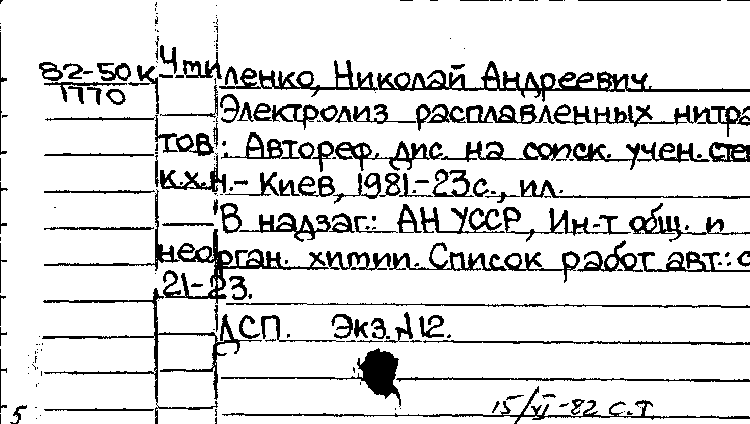 82-50к Чтиленко, Николай Андреевич.
1770
Электролиз расплавленных нитра
тов: Автореф. дис. на соиск. учен. степ
к.х.н.- Киев, 1981.-23с., ил.
В надзаг.: АН УССР, Ин-т общ. и
неорган. химии. Список работ авт.: с
21-23.
ДСП. Экз. №12.
15/XI-82 С.Т.
5